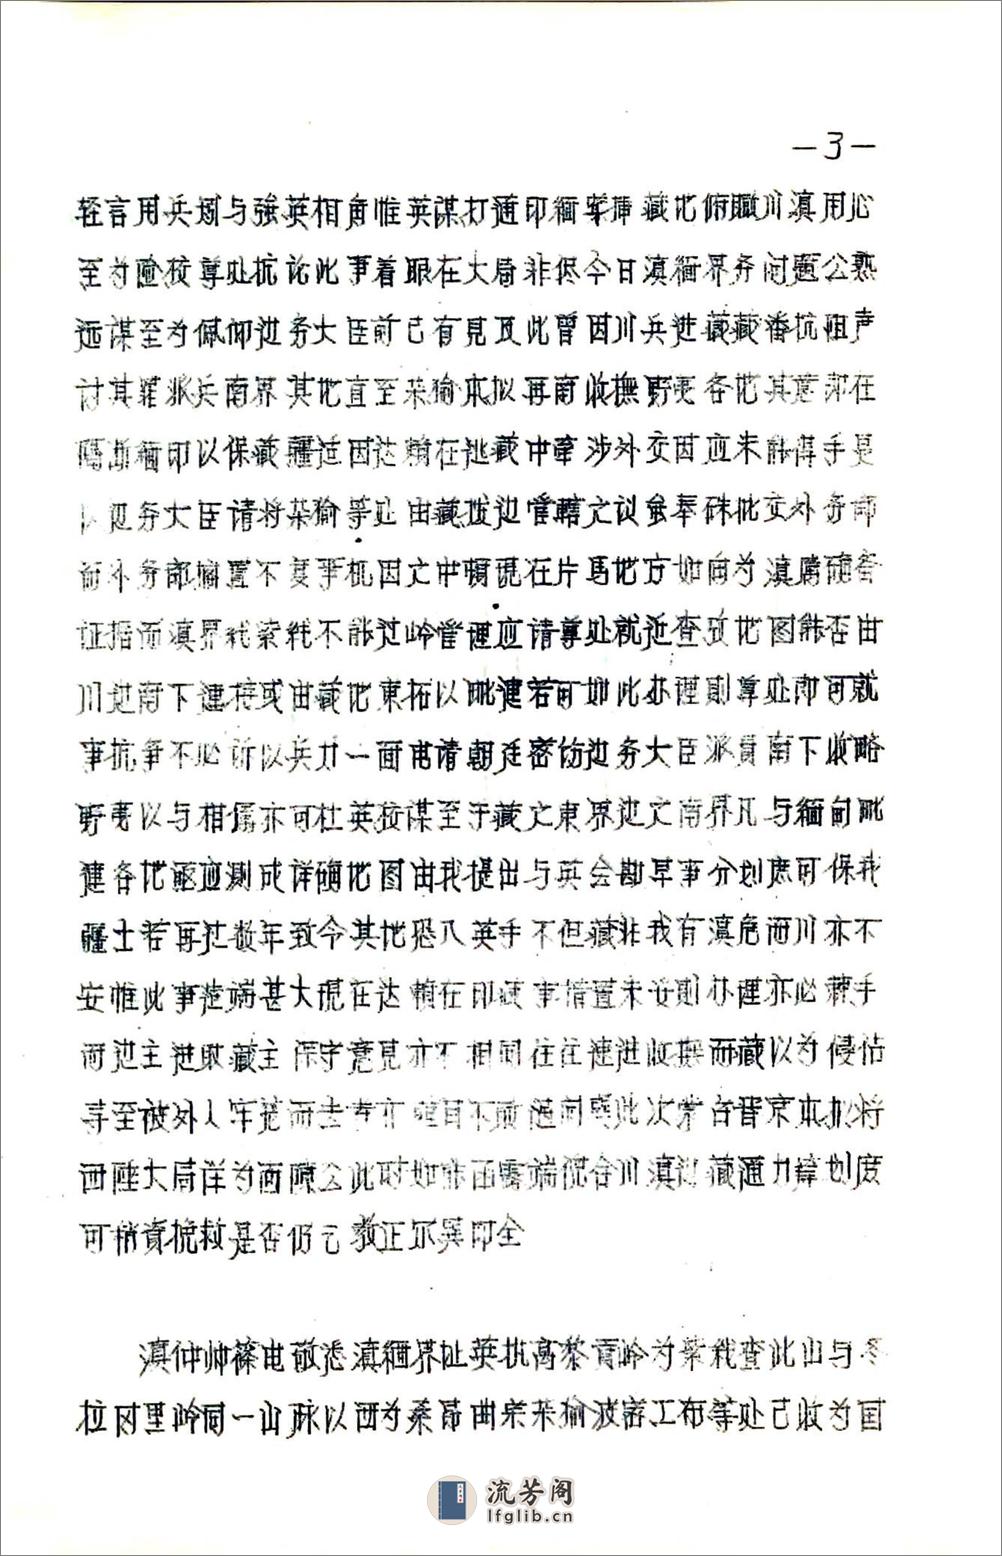 —3—
轻言用兵场与强英相角惟英谋打通印缅牵掸藏地俯瞰川滇用心
至为险狡尊处抗论此事着眼在大局非仅今日滇缅界务问题公熟
远谋至为佩仰边务大臣前已有见及此曾因川兵进藏藏番抗阻声
讨其罪派兵南界其地直至杂瑜本拟再南收抚野夷各地其意即在
隔断缅印以保藏疆适因达赖在逃藏中牵涉外交因应未能得手是
以边务大臣请将杂瑜等处由藏拨边管辖之议虽奉硃批交外务部
而外务部搁置不复事机因之中顿现在片马地方如向为滇属确各
证据而滇界线索线不能过岭管理应请尊处就近查考地图能否由
川边南下连接或由藏地东拓以毗连若可如此办理则尊处即可就
事抗争不必折以兵力一面电请朝廷密饬边务大臣派员南下收略
野夷以与相偪亦可杜英狡谋至于藏之东界边之南界凡与缅甸毗
连各地亟应测成详确地图由我提出与英会勘早事分划庶可保我
疆土若再过数年致令其地恐入英手不但藏非我有滇危而川亦不
安惟此事范端甚大现在达赖在印藏事措置未妥则办理亦必棘手
而边主进取藏主保守意见亦不相同往往边进收抚而藏以为侵佔
寻至被外人牢笼而去 此次 台晋京本拟将
西陲大局详为面陈 此时如能 合川滇边藏通力筹划庶
可稍资挽救是否仍乞教正尔巽印全
滇仲帅篠电敬悉滇缅界址英执高黎贡岭为索线查此山与冬
拉冈里岭同一山脉以西为桑昂曲宗杂瑜波密工布等处已收为国
流芳阁
lfglib.cn